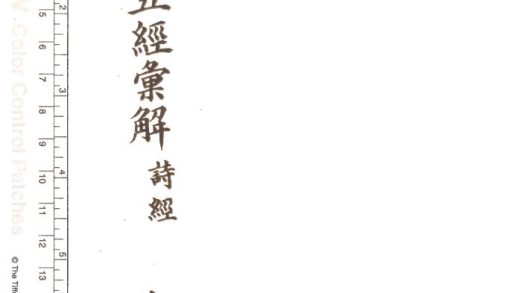 五經彙解 詩經
Color Control Patches
© The Tiff
2 3 4 5
5 6 7 8 9 10 11 12 13